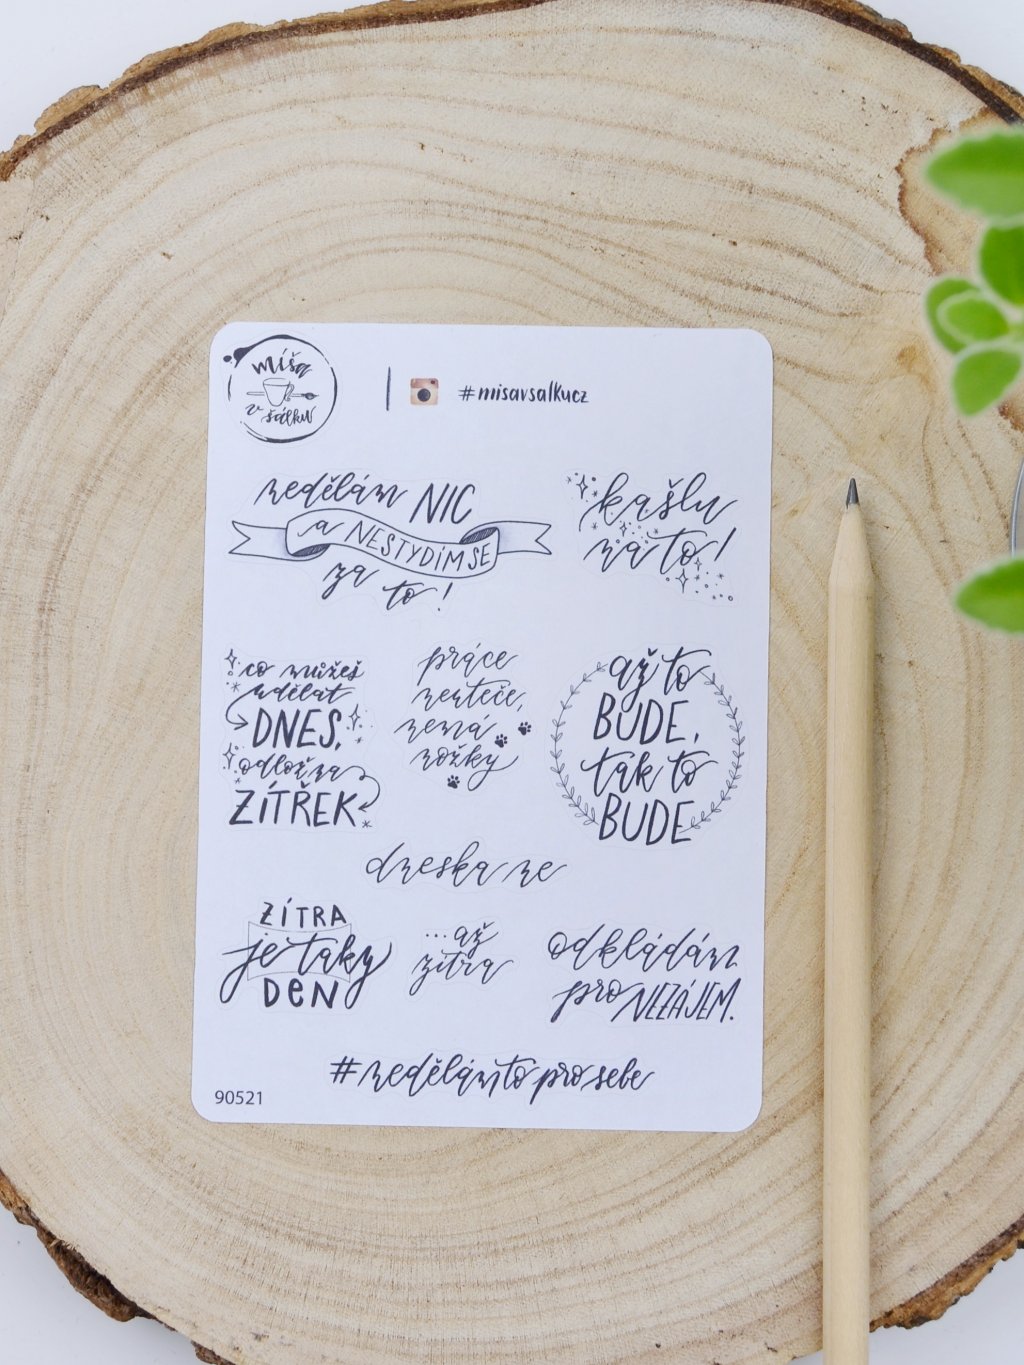 míša
v šálku
#misavsalkucz
nedělám NIC
a NESTYDÍM SE
za to!
kašlu
na to!
co můžeš
udělat
DNES,
odlož na
ZÍTŘEK
práce
neuteče,
nemá
nožky
až to
BUDE,
tak to
BUDE
dneska ne
ZÍTRA
je taky
DEN
...až
zítra
odkládám
pro NEZÁJEM.
#nedělámtoprosebe
90521